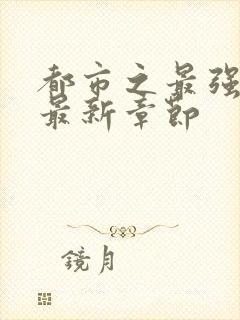 都市之最强
最新章节
镜月